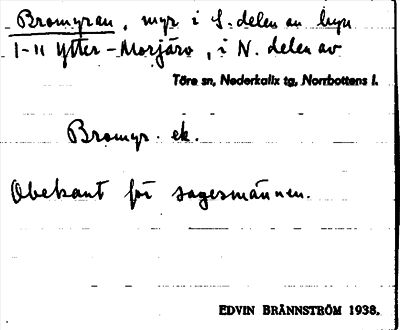 Bromyran, myr i S. delen av byn
1-11 Ytter-Morjärv, i N. delen av
Töre sn, Nederkalix tg, Norrbottens l.
Bromyr. ek.
Obekant för sagesmännen.
EDVIN BRÄNNSTRÖM 1938.